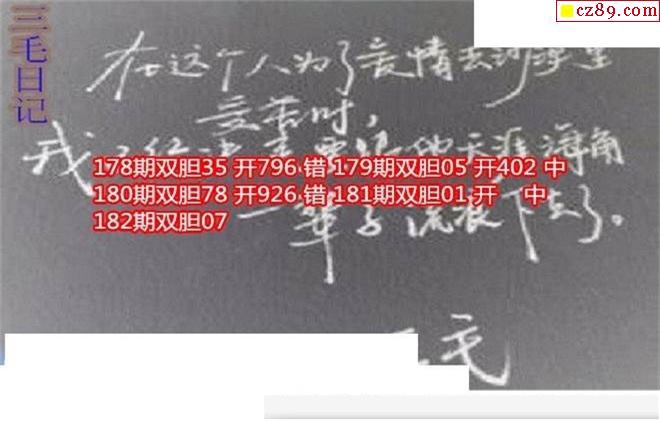 三毛日记
cz89.com
在这个人为了爱情去沙漠里
受苦时,
我
天涯海角
178期双胆35 开796 错 179期双胆05 开402 中
180期双胆78 开926 错 181期双胆01 开 中
182期双胆07
一辈子流浪下去了。
毛